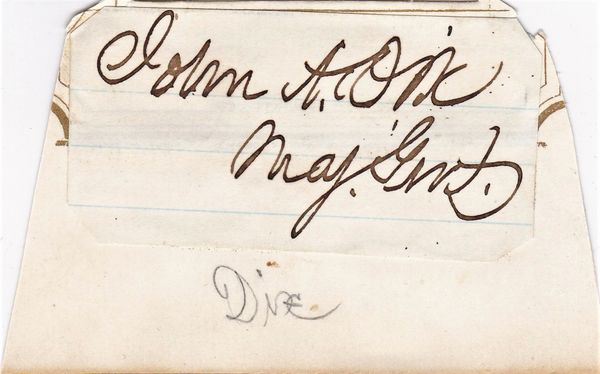 John A. Dix
Maj. Genl.
Dix